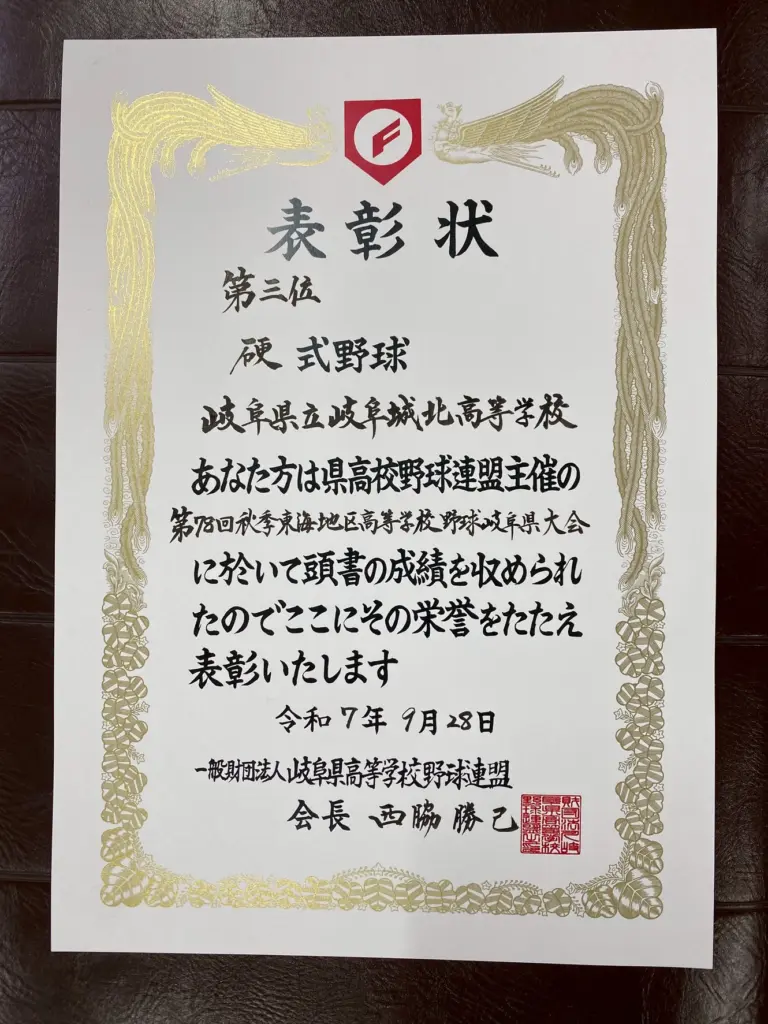 F
表彰状
第三位
硬式野球
岐阜県立岐阜城北高等学校
あなた方は県高校野球連盟主催の
第78回秋季東海地区高等学校野球岐阜県大会
に於いて頭書の成績を収められ
たのでここにその栄誉をたたえ
表彰いたします
令和7年9月28日
一般財団法人岐阜県高等学校野球連盟
会長 西脇勝己